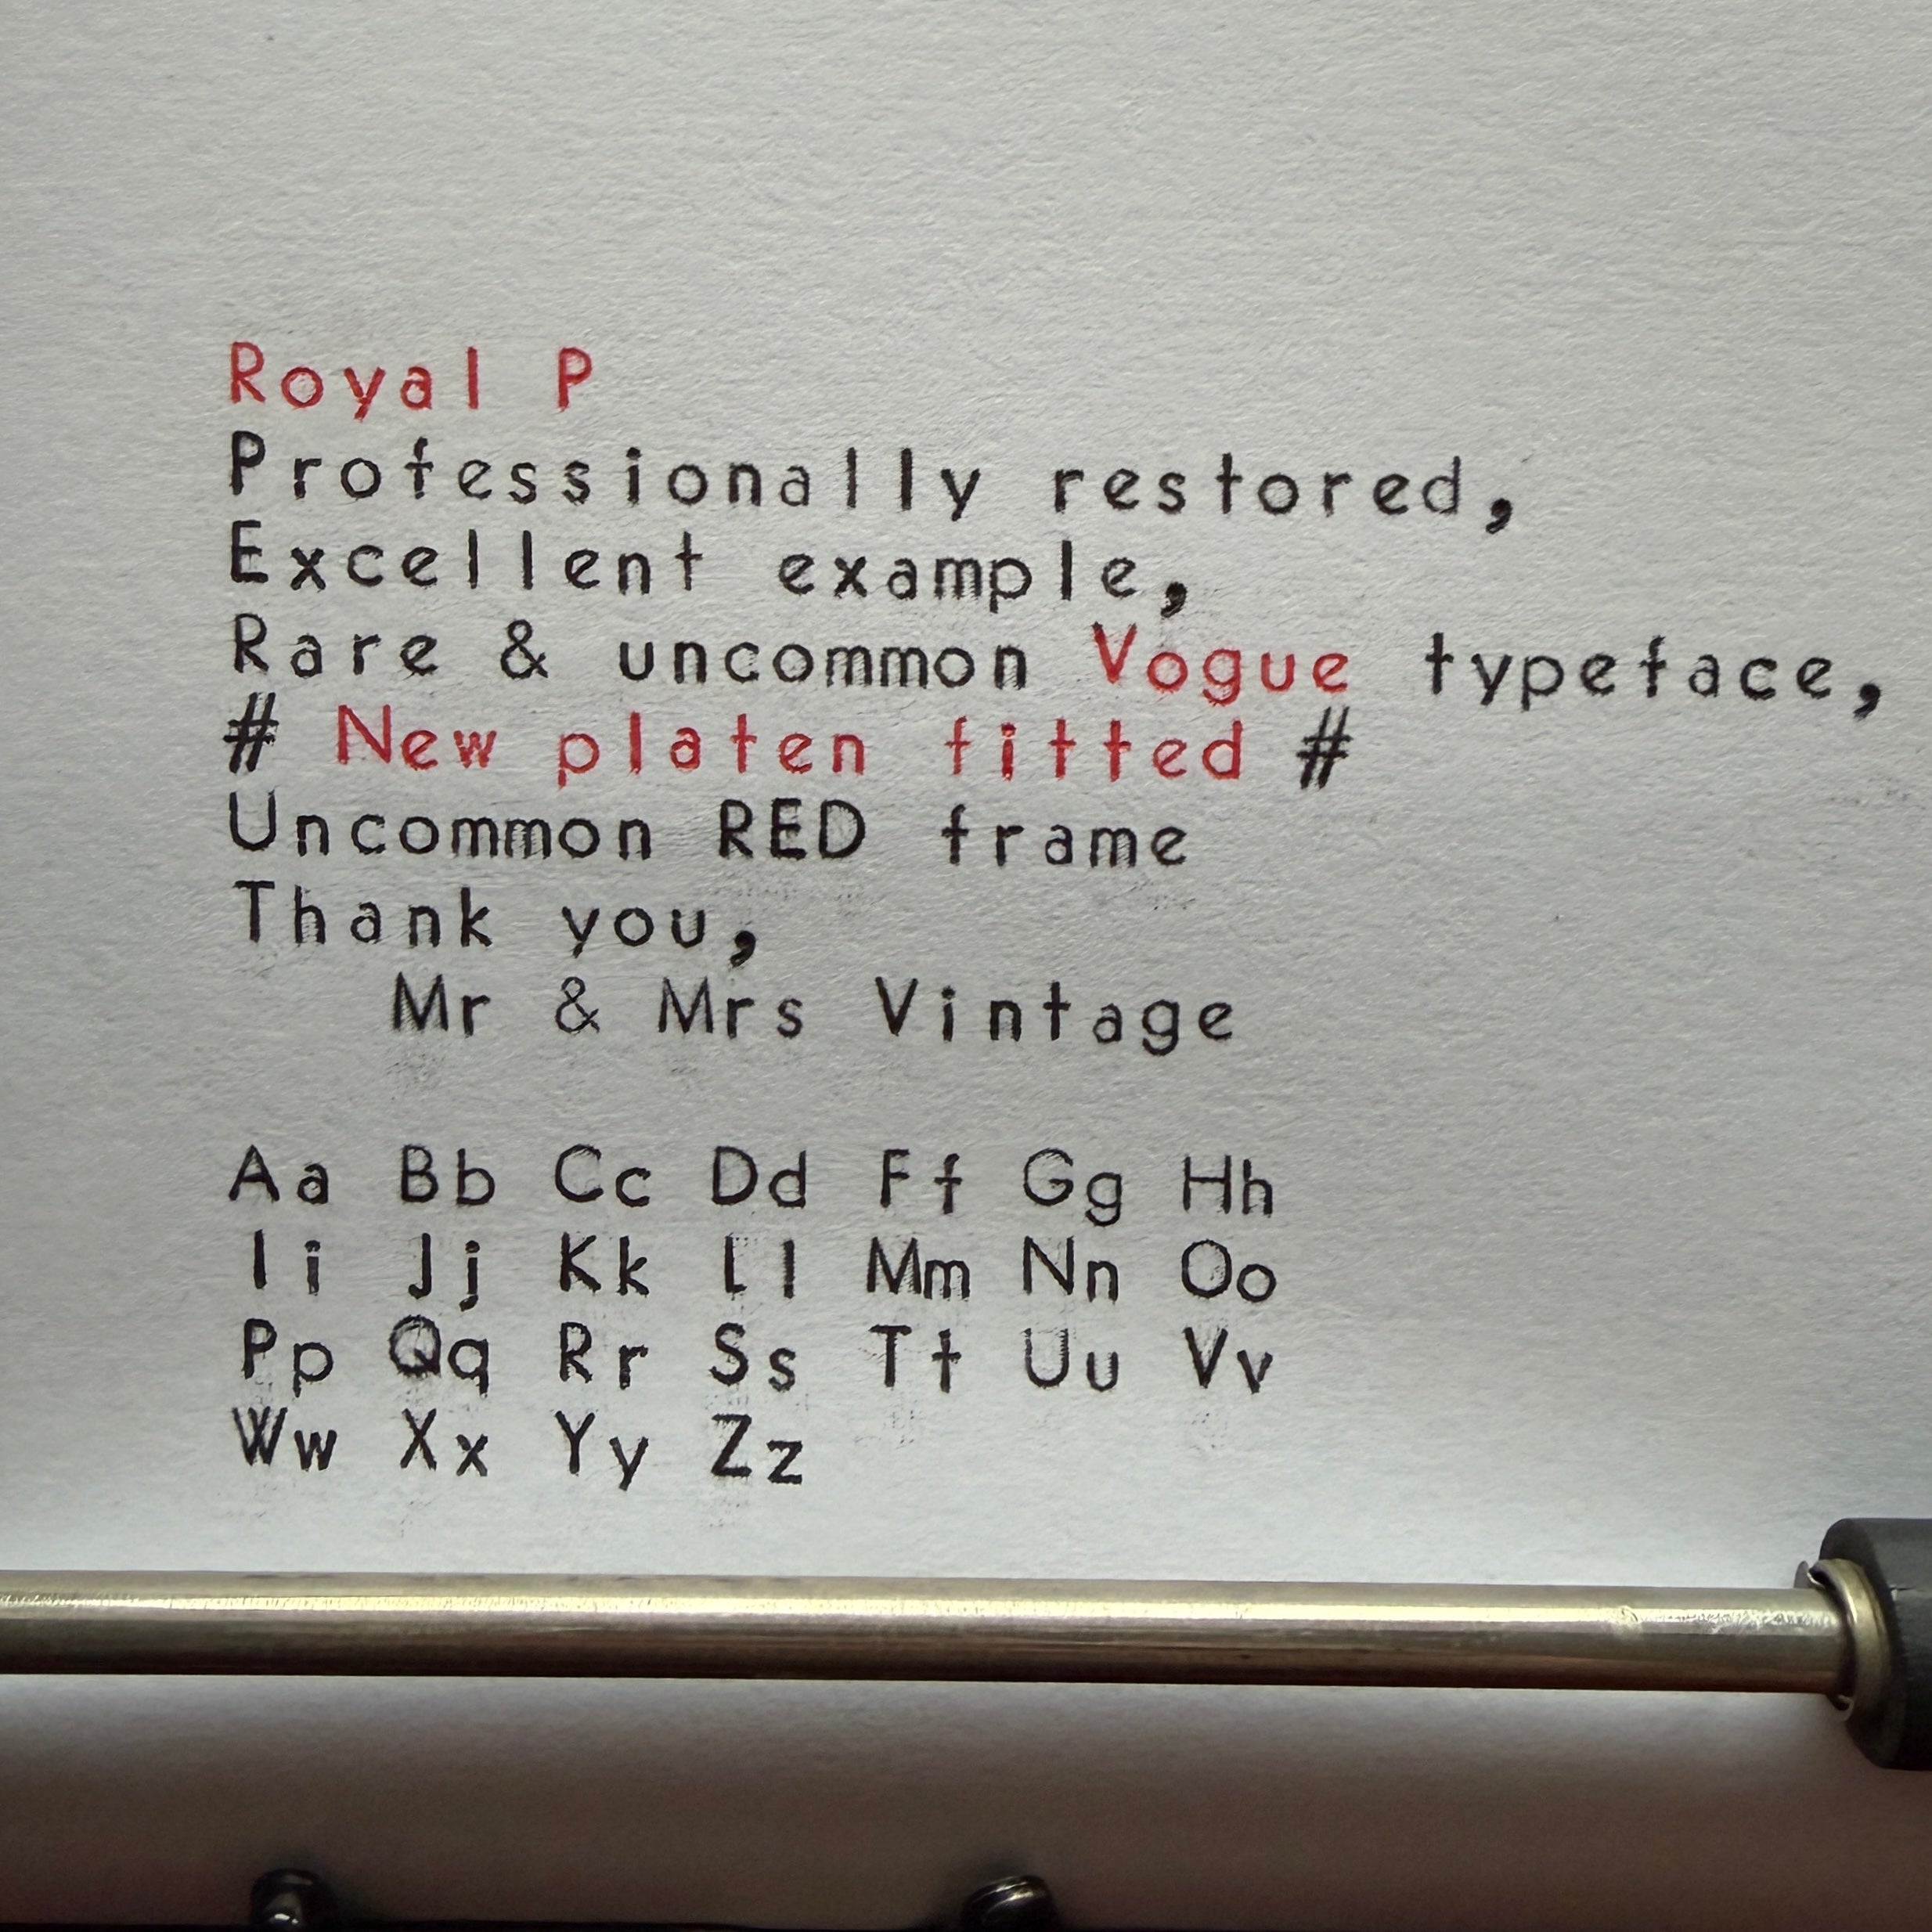 Royal P
Professionally restored,
Excellent example,
Rare & uncommon Vogue typeface,
# New platen fitted #
Uncommon RED frame
Thank you,
Mr & Mrs Vintage
Aa Bb Cc Dd Ff Gg Hh
Ii Jj Kk Ll Mm Nn Oo
Pp Qq Rr Ss Tt Uu Vv
Ww Xx Yy Zz